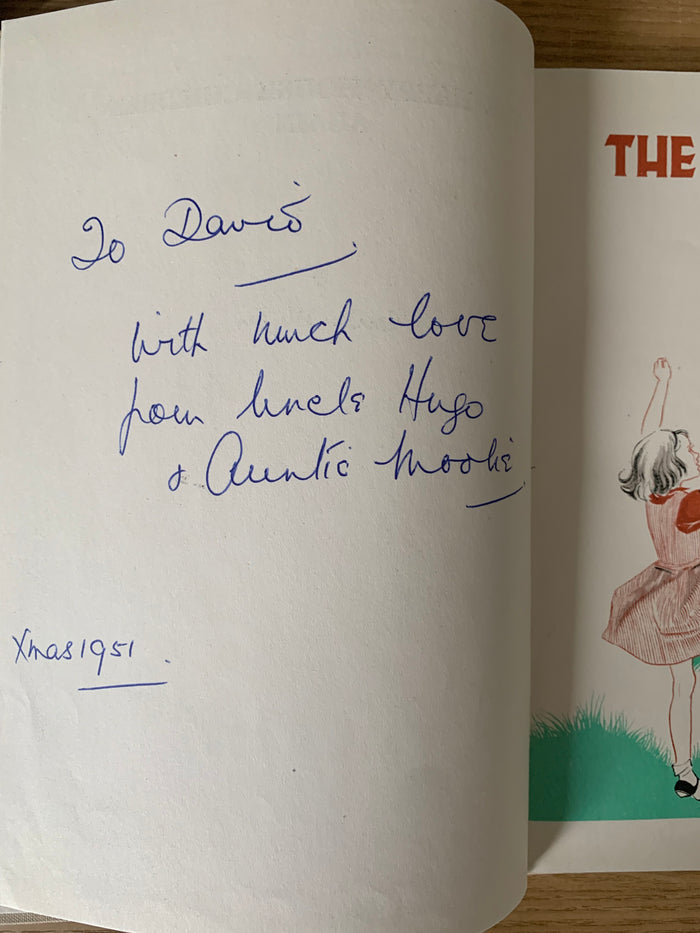 To David
With much love
from Uncle Hugo
& Auntie Mookie
Xmas 1951.
THE